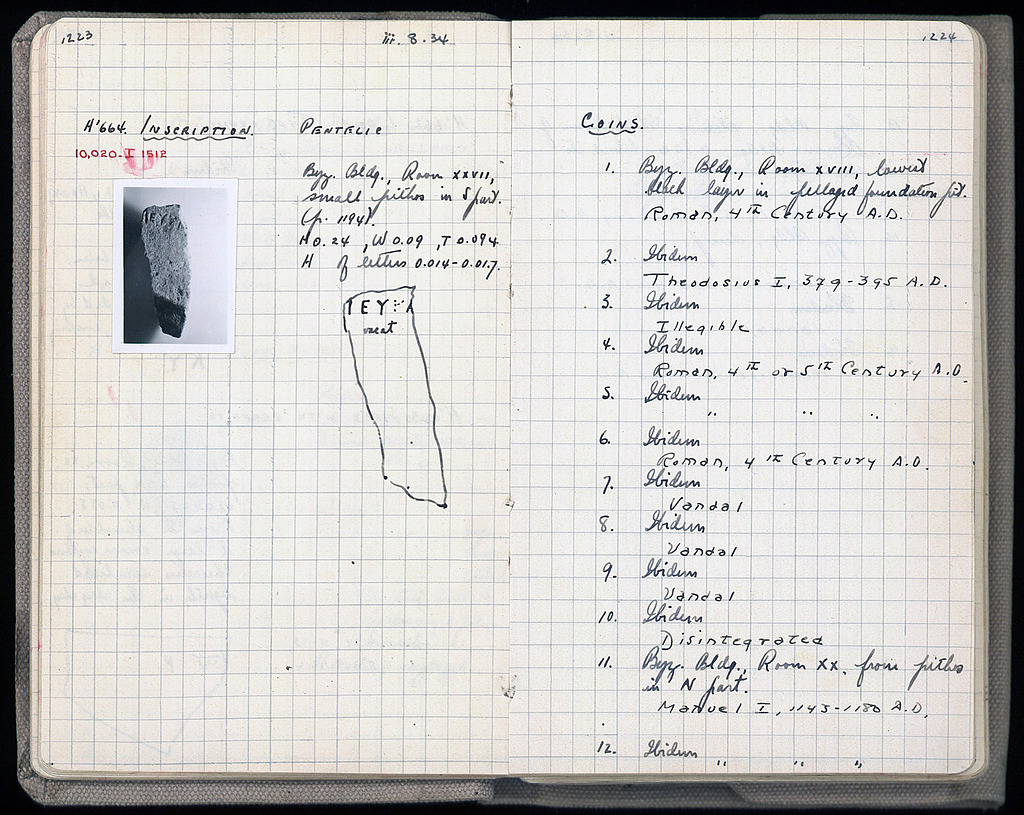 1223
iii. 8. 34
H'664. INSCRIPTION. PENTELIC
10,020. I 1512
Byz. Bldg., Room XXVII,
small pithos in S part.
(p. 1194).
H 0.24 , W 0.09 , T 0.094
H of letters 0.014-0.017.
IEY
vacat
1224
COINS.
1. Byz. Bldg., Room XVIII, lowest
black layer in pillaged foundation pit.
Roman, 4th Century A.D.
2. Ibidem
Theodosius I, 379-395 A.D.
3. Ibidem
Illegible
4. Ibidem
Roman, 4th or 5th Century A.D.
5. Ibidem
" " "
6. Ibidem
Roman, 4th Century A.D.
7. Ibidem
Vandal
8. Ibidem
Vandal
9. Ibidem
Vandal
10. Ibidem
Disintegrated
11. Byz. Bldg., Room XX, from pithos
in N part.
Manuel I, 1143-1180 A.D.
12. Ibidem
" " "